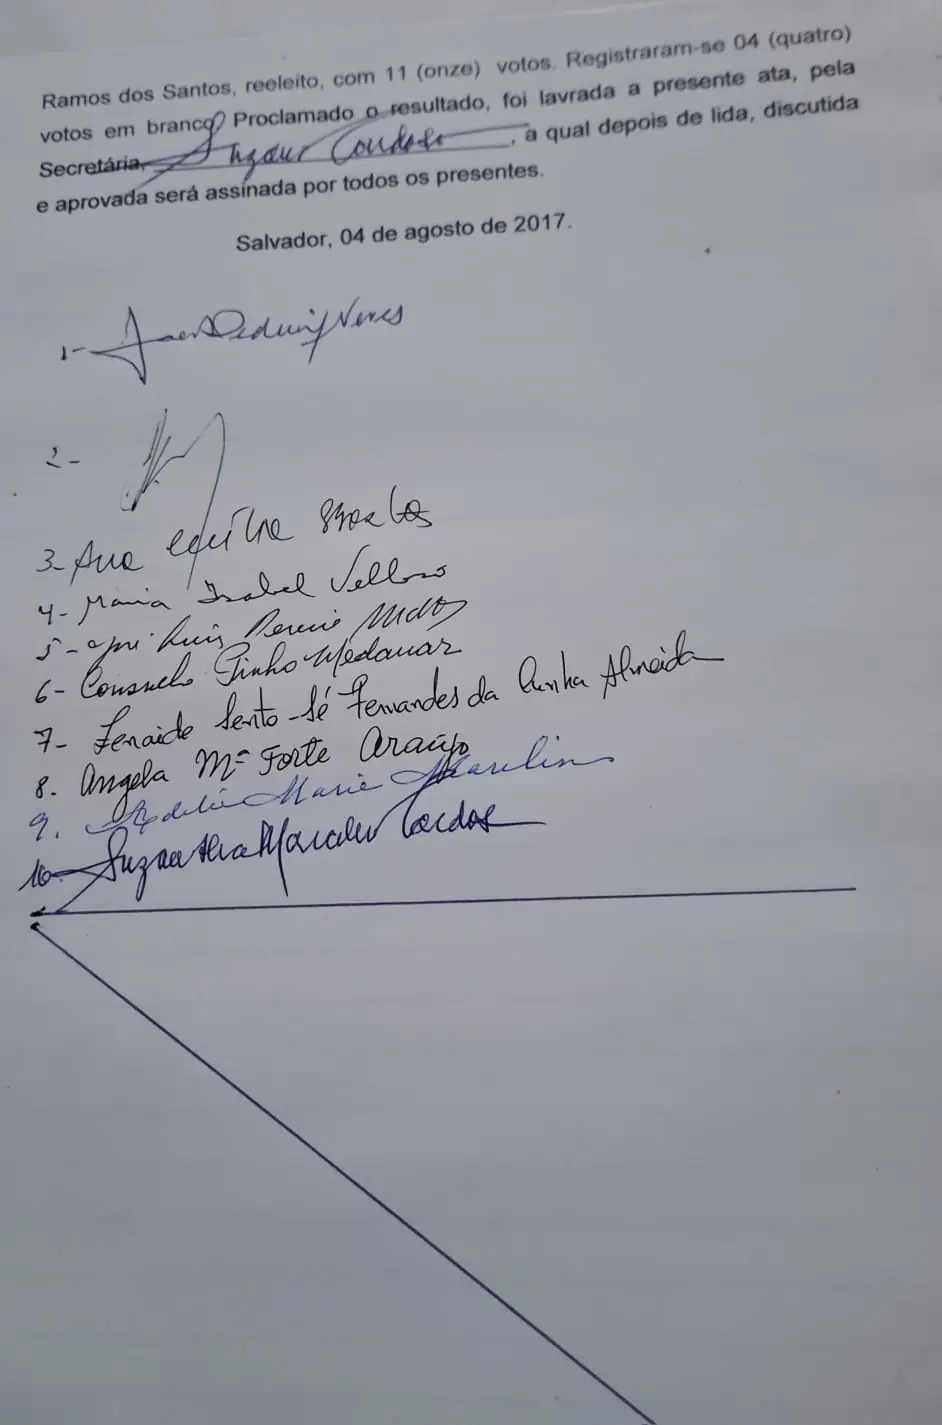 Ramos dos Santos, reeleito, com 11 (onze) votos. Registraram-se 04 (quatro)
votos em branco. Proclamado o resultado, foi lavrada a presente ata, pela
Secretária, Cardoso, a qual depois de lida, discutida
e aprovada será assinada por todos os presentes.
Salvador, 04 de agosto de 2017.
1-
2-
3- Ana
4- Maria Isabel Velloso
5- Luis Mattos
6- Consuelo Pinho Medauar
7- Zenaide Sento-Sé Fernandes da Cunha Almeida
8. Angela Mª Forte Araújo
9. Maria
10- Cardoso